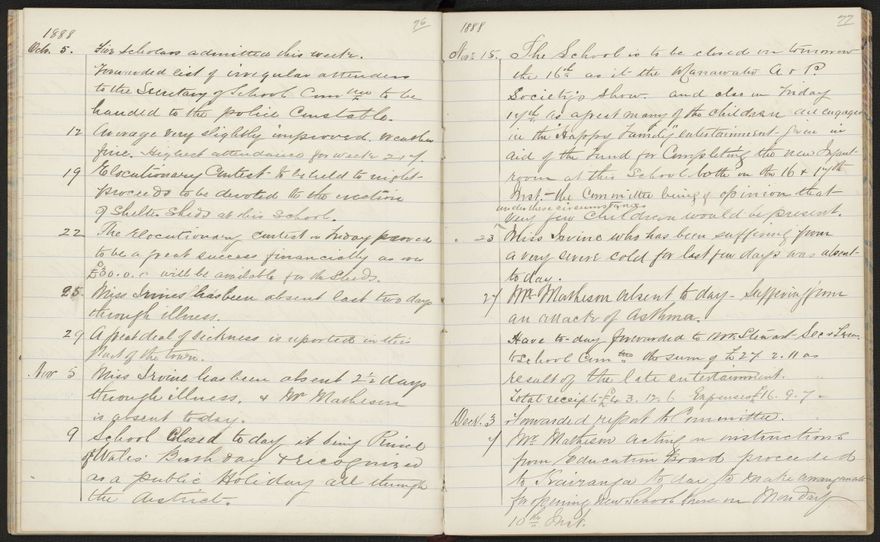 1888
76
Octr. 5. Five Scholars admitted this week.
Forwarded list of irregular attenders
to the Secretary of School Comtee to be
handed to the police Constable.
12 Average very slightly improved. Weather
fine. Highest attendance for week
19 Elocutionary Contest to be held to-night
proceeds to be devoted to the erection
of Shelter Sheds at this School.
22 The Elocutionary Contest on Friday proved
to be a great success financially as over
£30.0.0 will be available for the Sheds.
25 Miss has been absent last two days
through illness.
29 A great deal of sickness is reported in this
Part of the town.
Nov 5 Miss Irvine has been absent 2½ days
through illness. & Mr Matheson
is absent to day.
9 School Closed to day it being Prince
of Wales' Birth day & recognized
as a public Holiday all through
the district.
1888
77
Nov 15. The School is to be closed on tomorrow
the 16th as it is the Manawatu A & P.
Society's Show. and also on Friday
17th as a great many of the children are engaged
in the "Happy Family" entertainment given in
aid of the Fund for Completing the new Infant
room at this School both on the 16 & 17th
Inst. - the Committee being of opinion that
under these circumstances
very few children would be present.
23 Miss Irvine who has been suffering from
a very severe cold for last few days was absent
to day.
27 Mr Matheson absent to day - suffering from
an attack of asthma.
Have to-day forwarded to Mr Stewart Sec & Treas.
to School Comtee the sum of £27.2.11 as
result of the late entertainment.
Total receipts £43.12.6 Expenses £16.9.7.
Decr. 3 Forwarded report to Committee.
7 Mr Matheson acting on instructions
from Education Board proceeded
to Kairanga to day to make arrangements
for opening new School there on Monday
10th Inst.